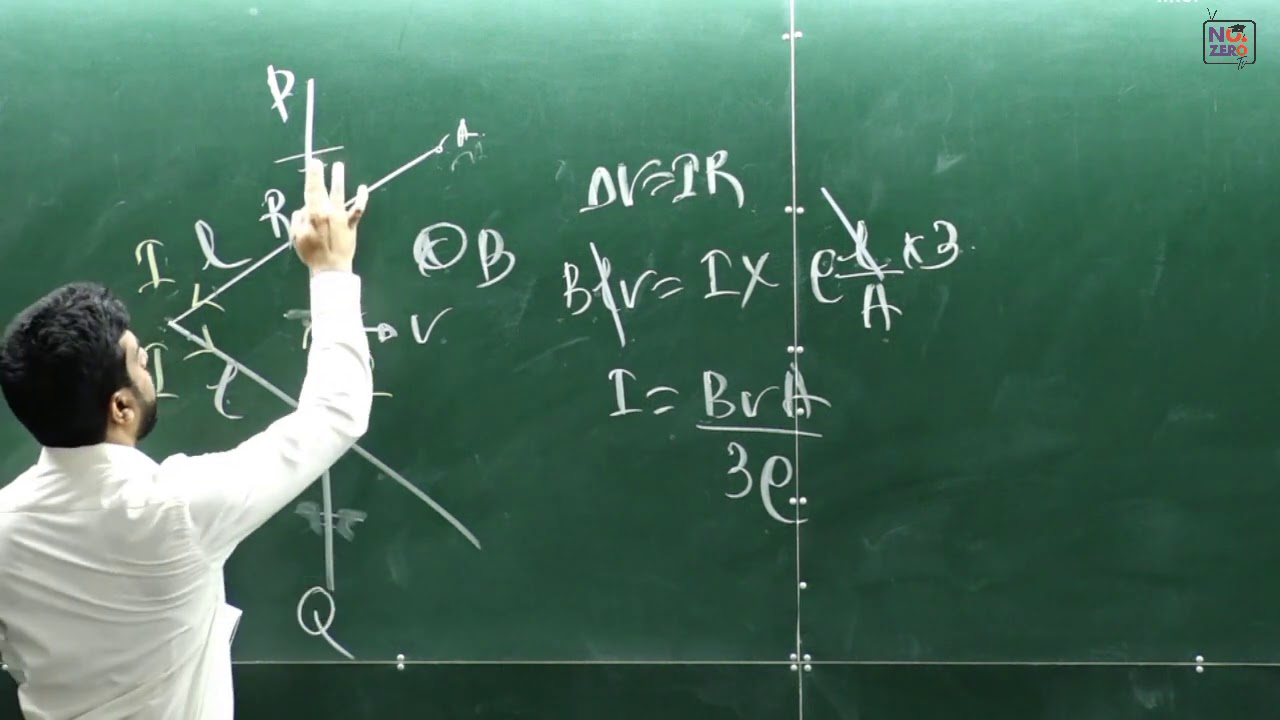 NO.
ZERO
TV
P
A
R
l
I
B
V
I
l
Q
ΔV=IR
Blv = I × ρ l/A × 3
I = BvA / 3ρ